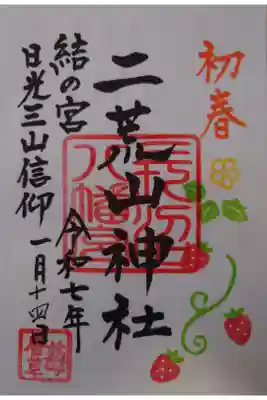 初春
二荒山神社
結の宮
令和七年
日光三山信仰
一月十四日